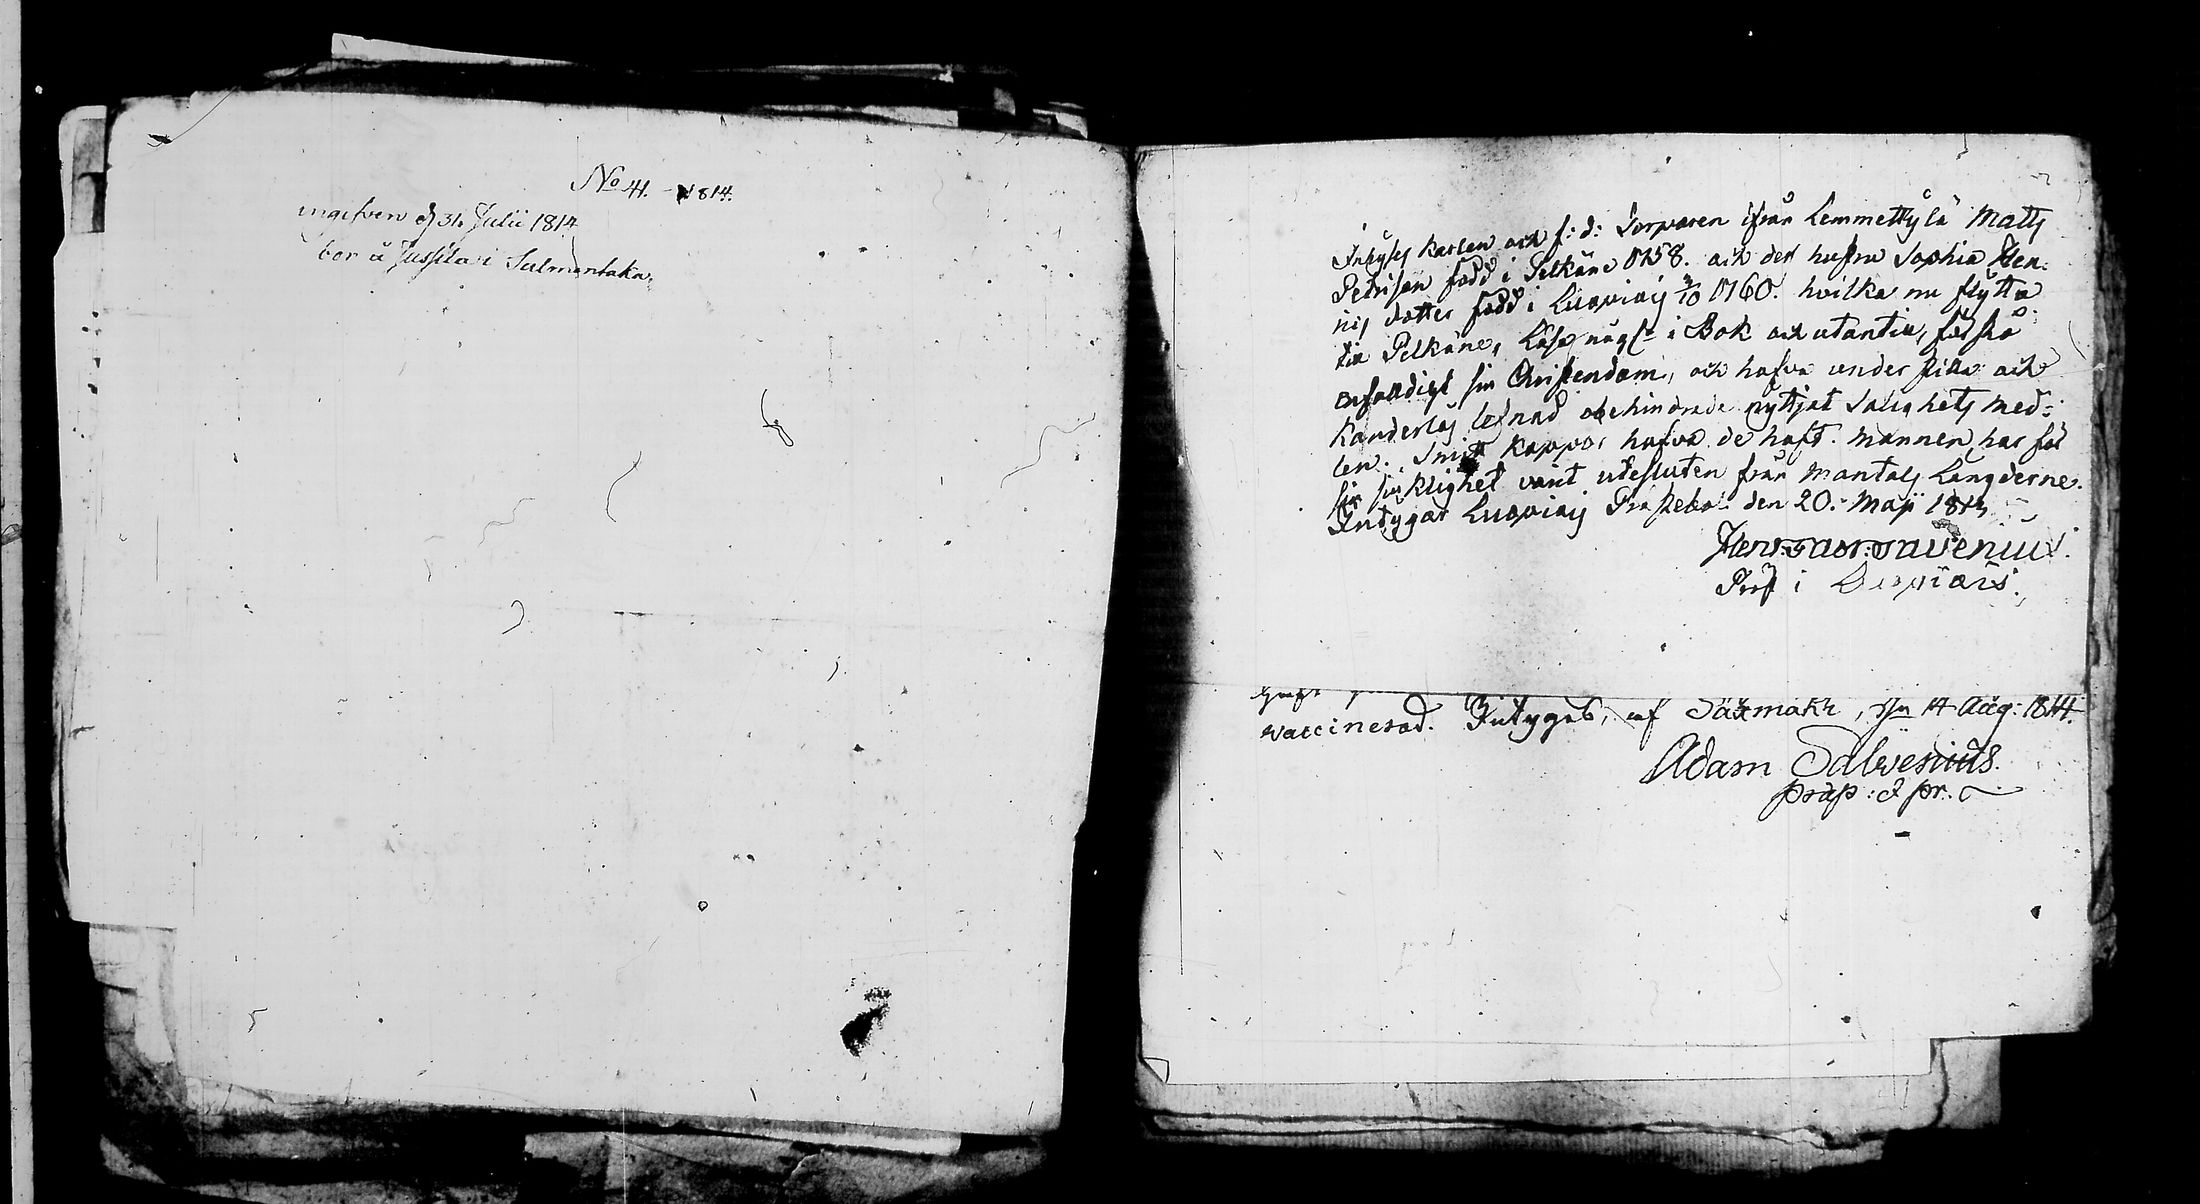 No 41. 1814.
ingifven d 31 Julii 1814
bor å Jussila i Salmentaka.
Inhyses Karlen och f: d: Torparen ifrån Lemmettylä Matts
Petrison född i Pelkäne 1758. och dess hustru Sophia Hen-
rics dotter född i Luopiois 2/10 1760. hvilka nu flytta
till Pelkäne, Läsa någ. i Bok och utantill, förstå
enfalldigt sin Christendom, och hafva under stilla och
lefnad obehindrade nyttjat Salighets Med-
len. Smitt Koppor hafva de haft. Mannen har för
sin sjuklighet varit utesluten från Mantals Längderne.
Intygar Luopiois Prästebol den 20. Maji 1814
i Luopiois.
vaccinerad. Intygas, af Säxmäki, d 14 Aug: 1814.
Adam Salvenius.
præp: & pr.